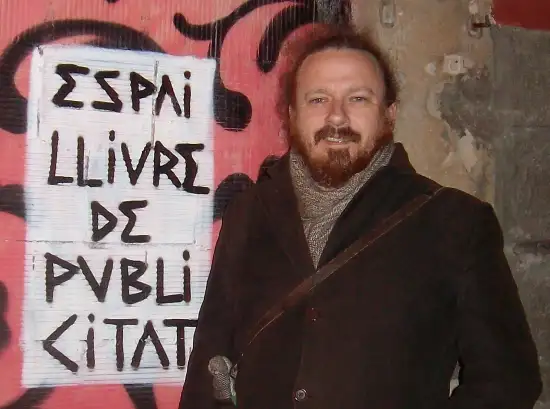 ESPAi
LLiVRE
DE
PVBLi
CiTAT